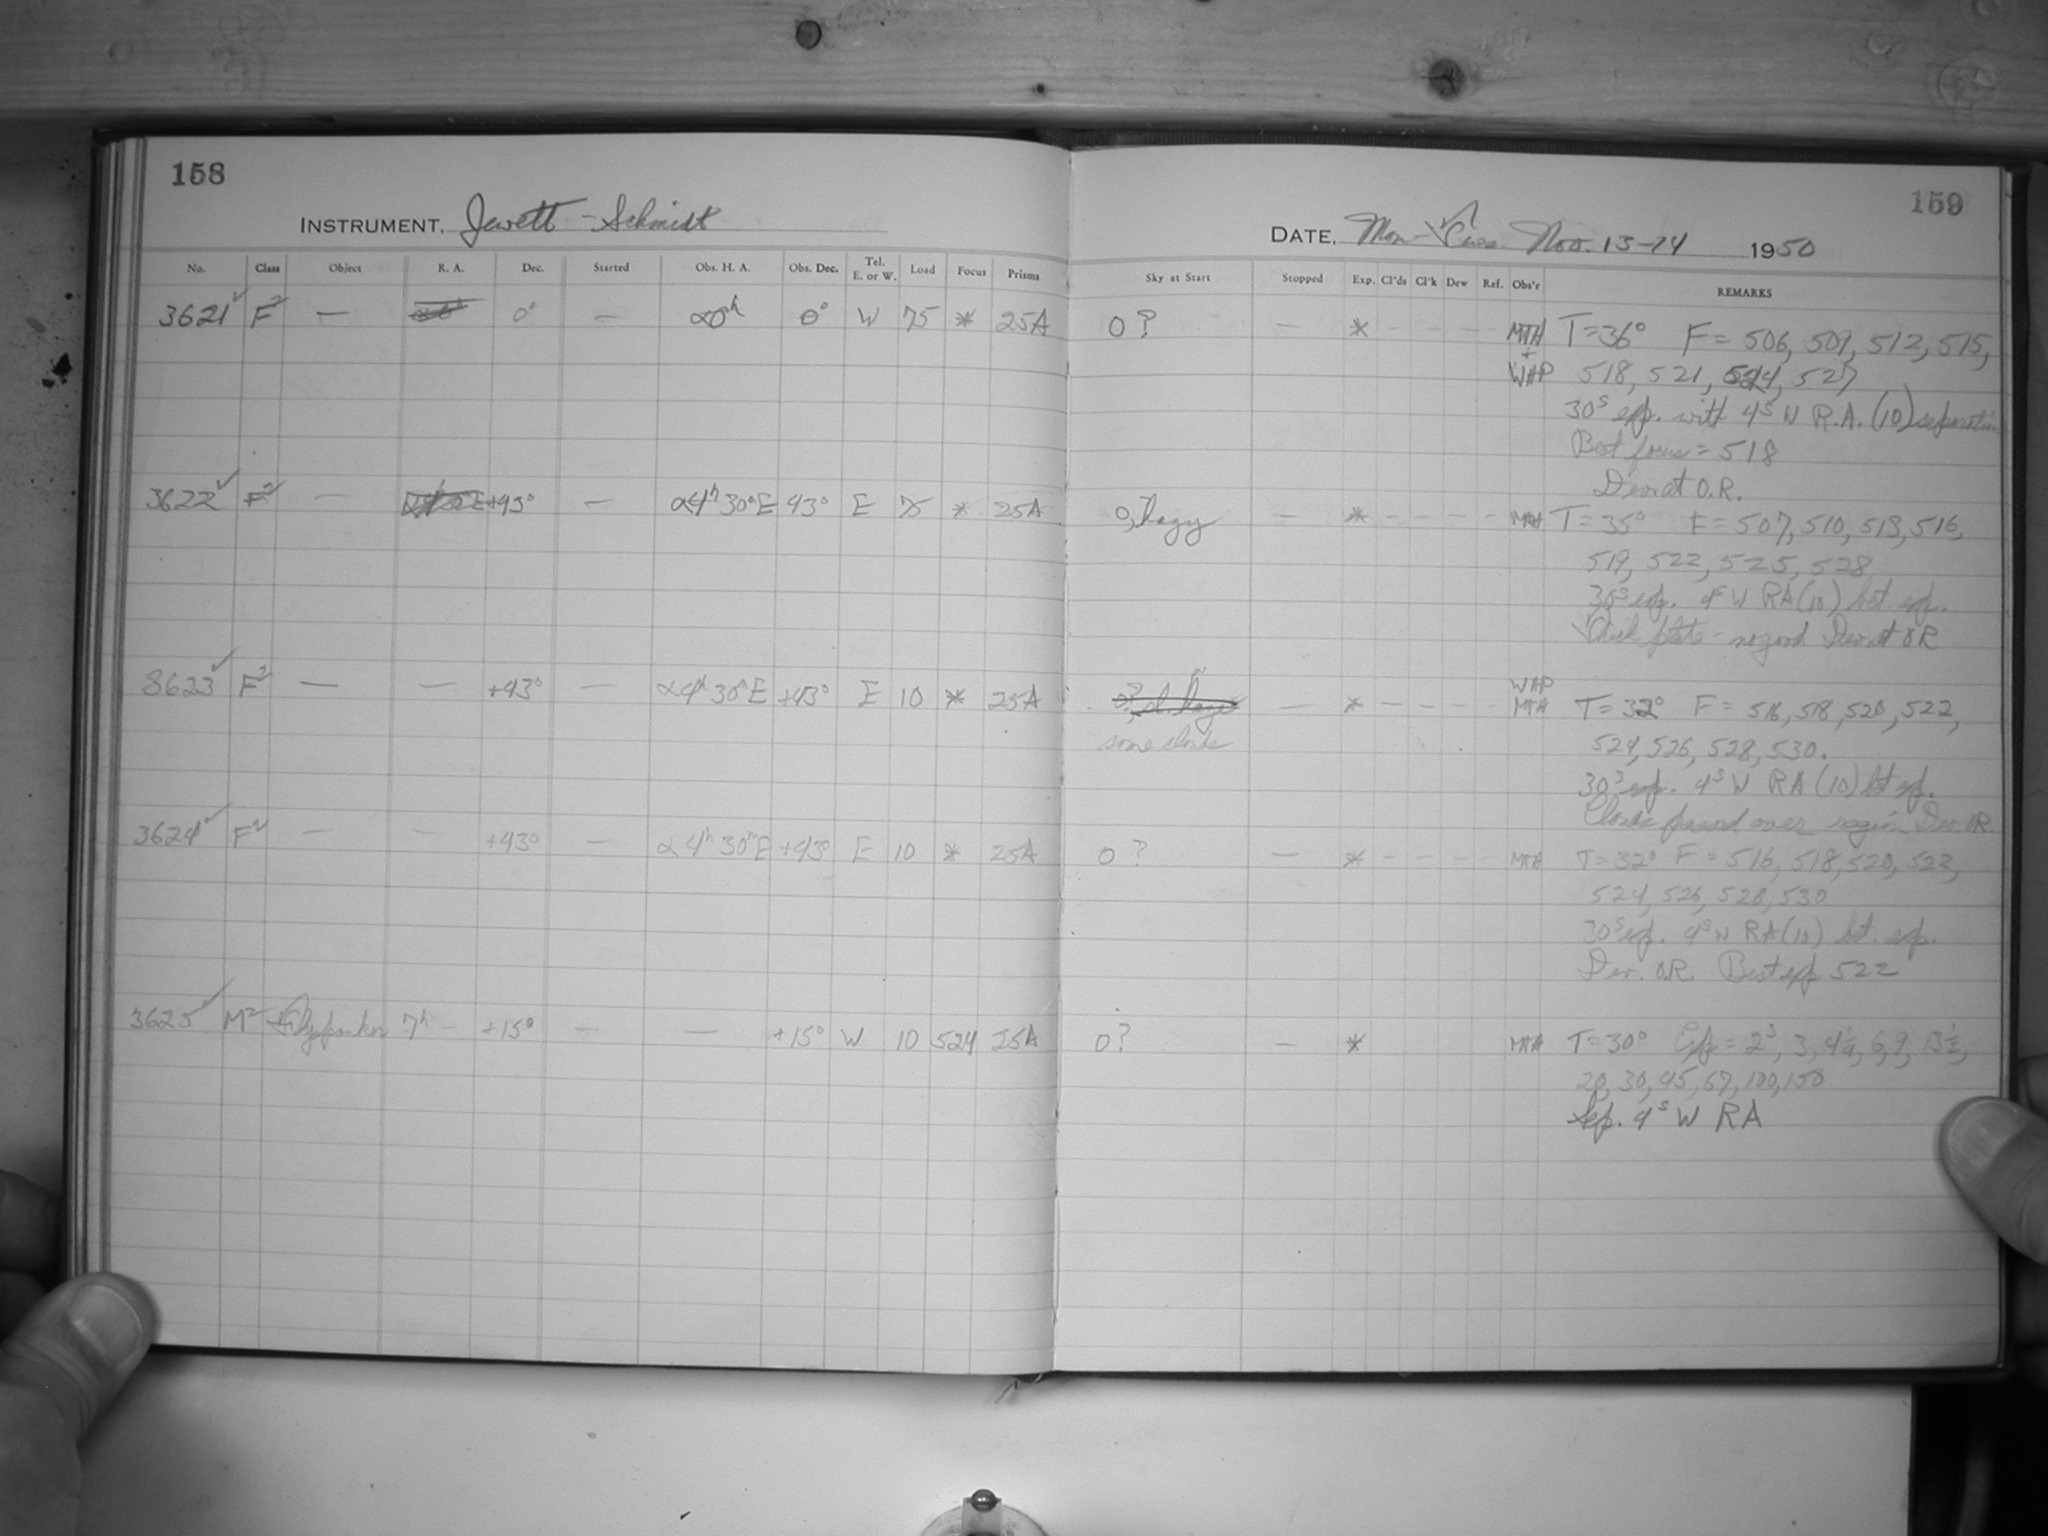 158
INSTRUMENT, Jewett-Schmidt
No. Class Object R. A. Dec. Started Obs. H. A. Obs. Dec. Tel. E. or W. Load Focus Prisms
3621 ✓ F² — 0° — α0ʰ 0° W 75 * 25A
3622 ✓ F² — +43° — α4ʰ30ᵐE 43° E 75 * 25A
3623 ✓ F² — — +43° — α4ʰ30ᵐE +43° E 10 * 25A
3624 ✓ F² — — +43° — α4ʰ30ᵐE +43° E 10 * 25A
3625 ✓ M² 7ʰ — +15° — — +15° W 10 524 25A
159
DATE, Mon-Tues. Nov. 13-14 1950
Sky at Start Stopped Exp. Cl'ds Cl'k Dew Ref. Obs'r REMARKS
0? — * - - - - MTH + WAP T=36° F = 506, 509, 512, 515,
518, 521, 524, 527
30ˢ exp. with 4ˢ W R.A. (10) separation
Best focus = 518
Dew at O.R.
0, hazy — * - - - - MTH T=35° F = 507, 510, 513, 516,
519, 522, 525, 528
30ˢ exp. 4ˢ W RA (10) bet. exp.
Thick plate - no good Dew at OR
some clouds — * - - - - WAP MTH T = 32° F = 516, 518, 520, 522,
524, 526, 528, 530.
30ˢ exp. 4ˢ W RA (10) bet exp.
Clouds passed over region Dew OR
0? — * - - - - MTH T=32° F = 516, 518, 520, 522,
524, 526, 528, 530
30ˢ exp. 4ˢ W RA (10) bet. exp.
Dew. O.R. Best exp 522
0? — * MTH T=30° Exp = 2ˢ, 3, 4½, 6, 9, 13½,
20, 30, 45, 67, 100, 150
Sep. 4ˢ W RA